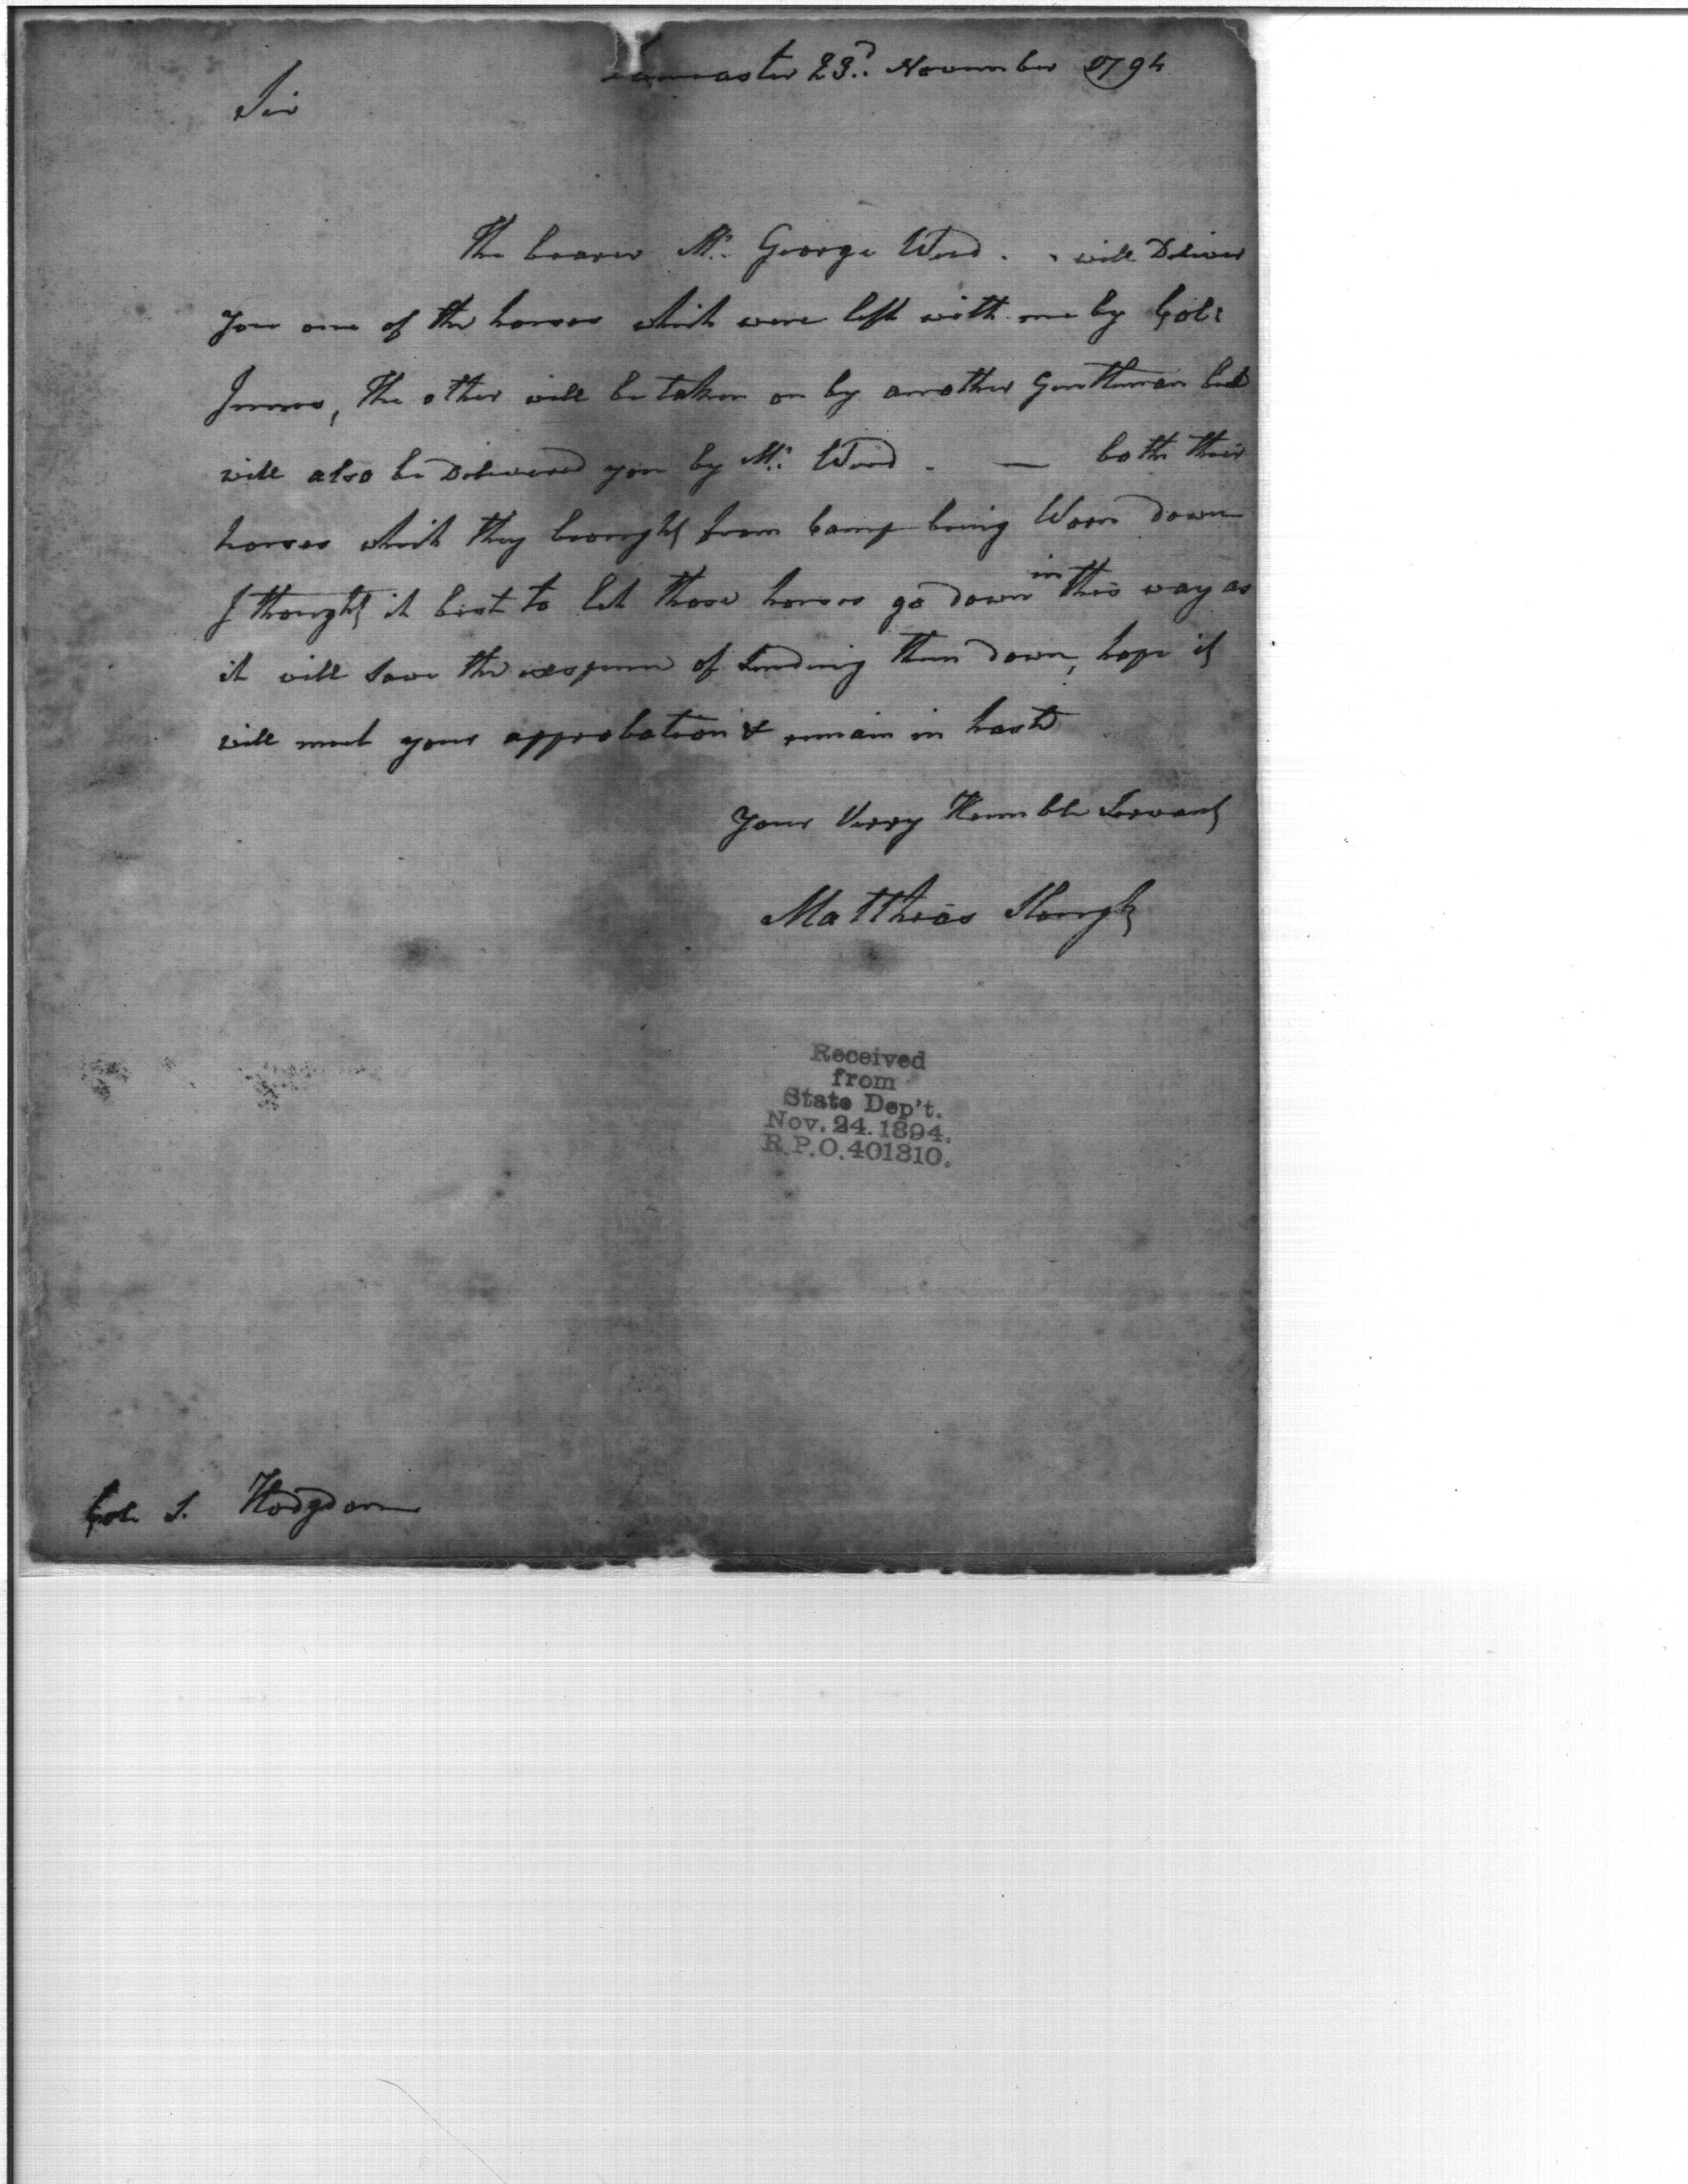 Lancaster 23d. November 1794
Sir
The bearer Mr. George Weed. . will Deliver
you one of the horses which were left with me by Col:
The other will be taken on by another Gentleman but
will also be Delivered you by Mr. Weed. — both their
horses which they brought from Camp being Worn down
I thought it best to let those horses go down in this way as
it will Save the expense of Sending them down, hope it
will meet your approbation & remain in haste
Your Verry Humble Servant
Matthias Slough
Received
from
State Dep't.
Nov. 24. 1894.
R.P.O. 401310.
Col. S. Hodgdon